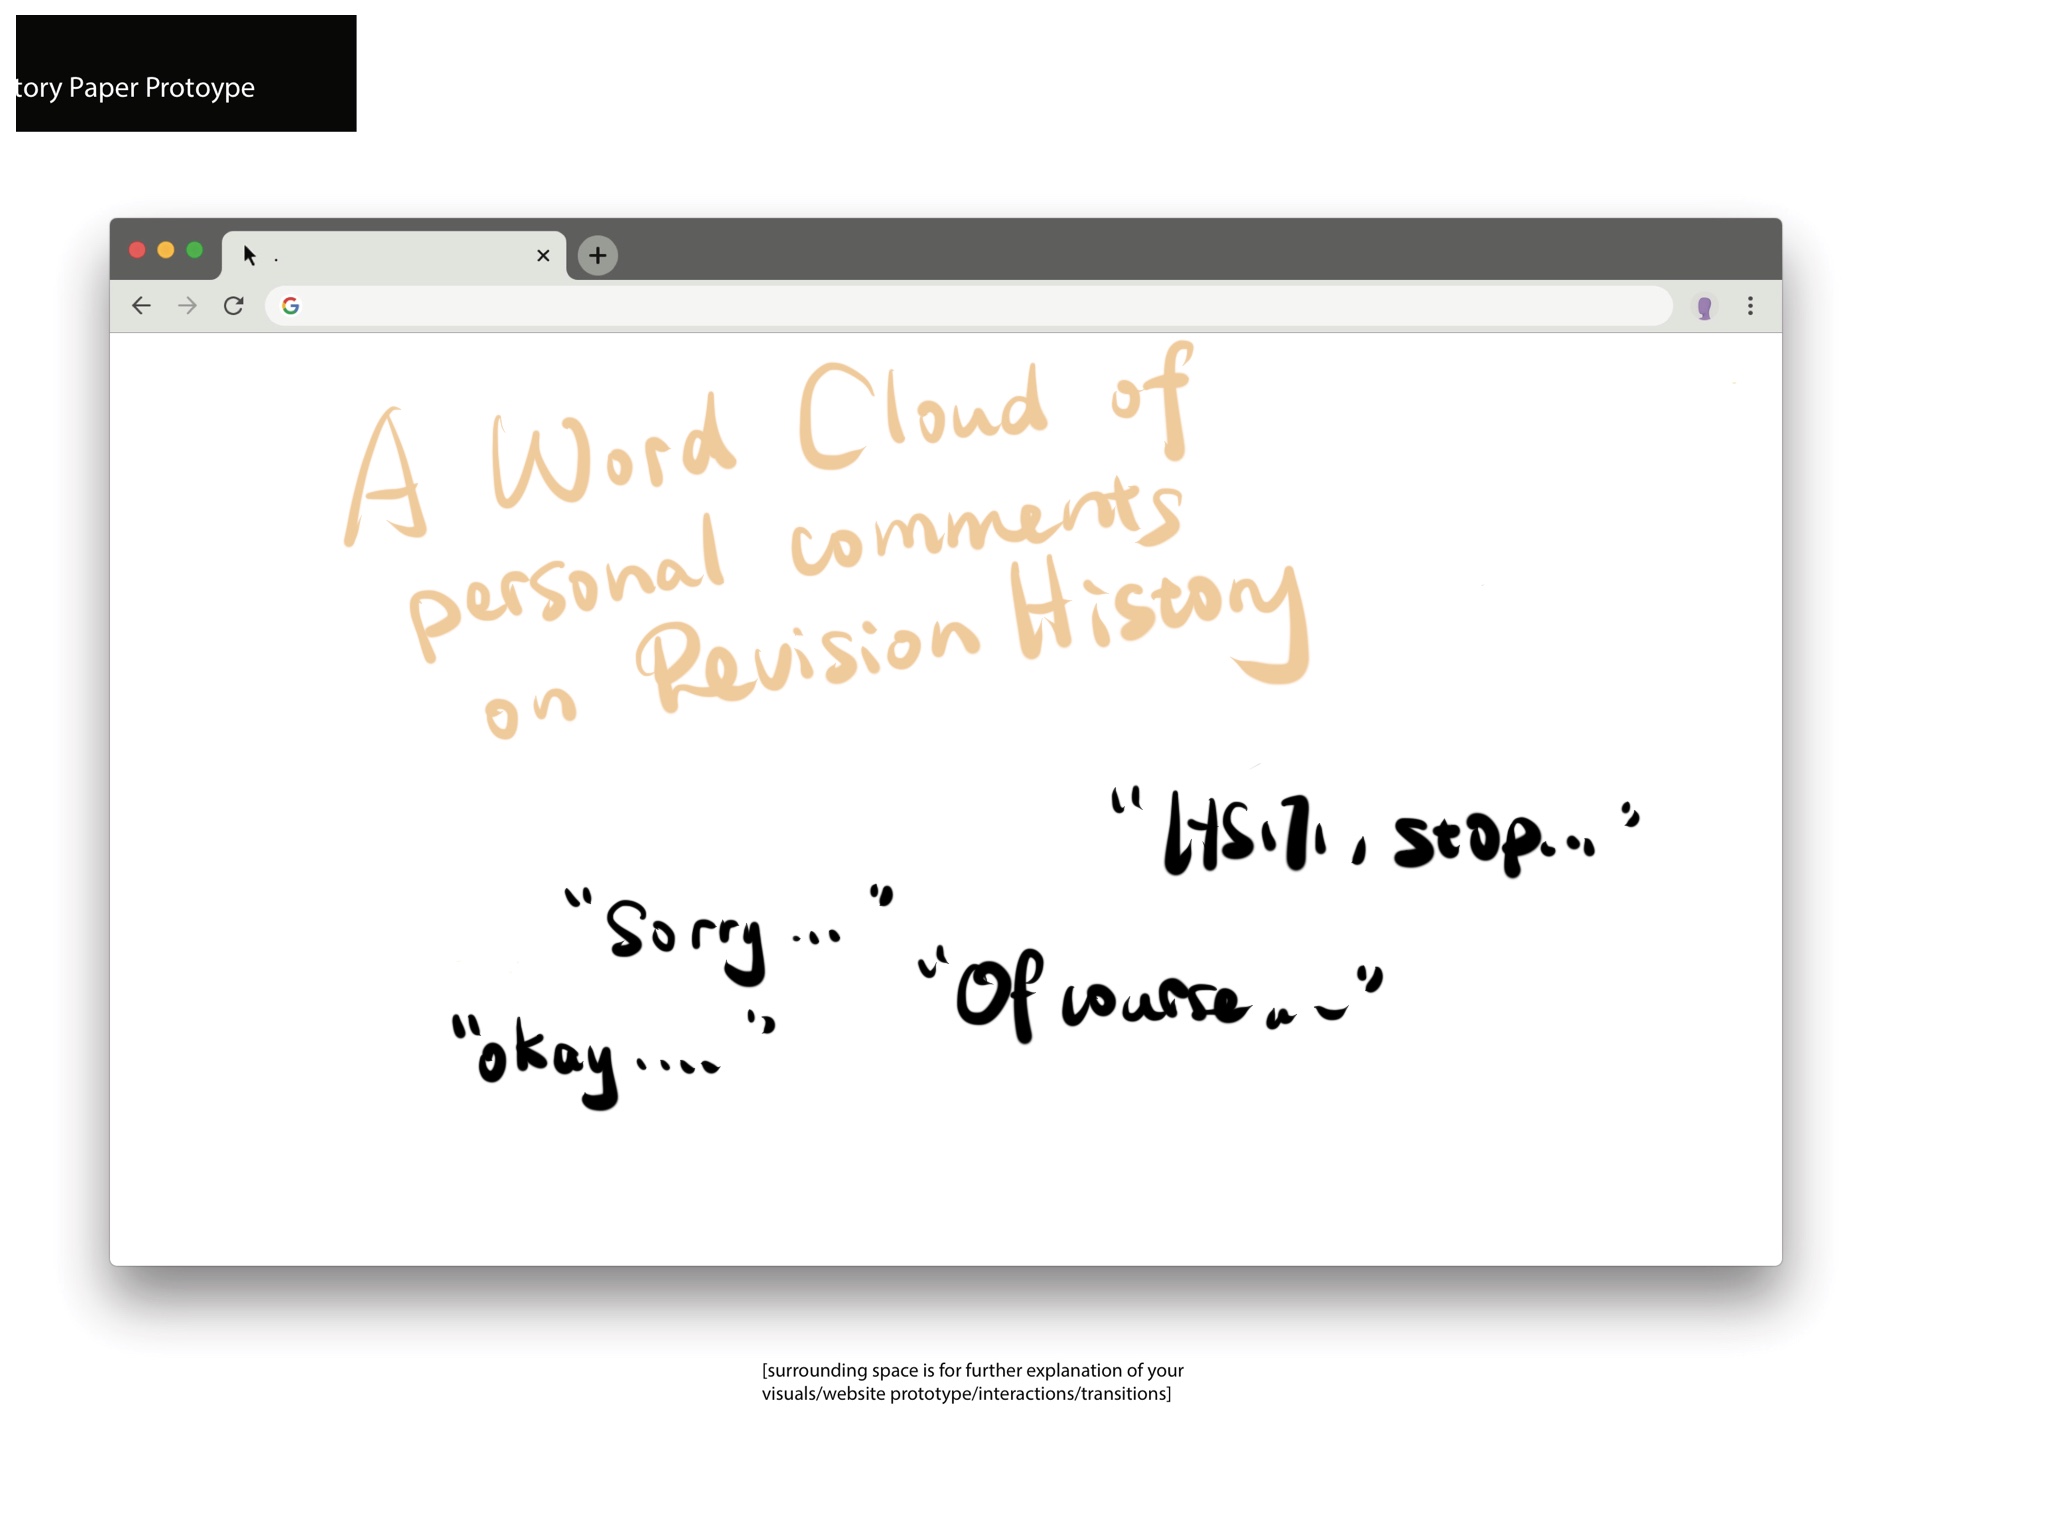 tory Paper Protoype
.
A Word Cloud of
personal comments
on Revision History
", stop..."
"Sorry..."
"Of course..."
"okay...."
[surrounding space is for further explanation of your
visuals/website prototype/interactions/transitions]